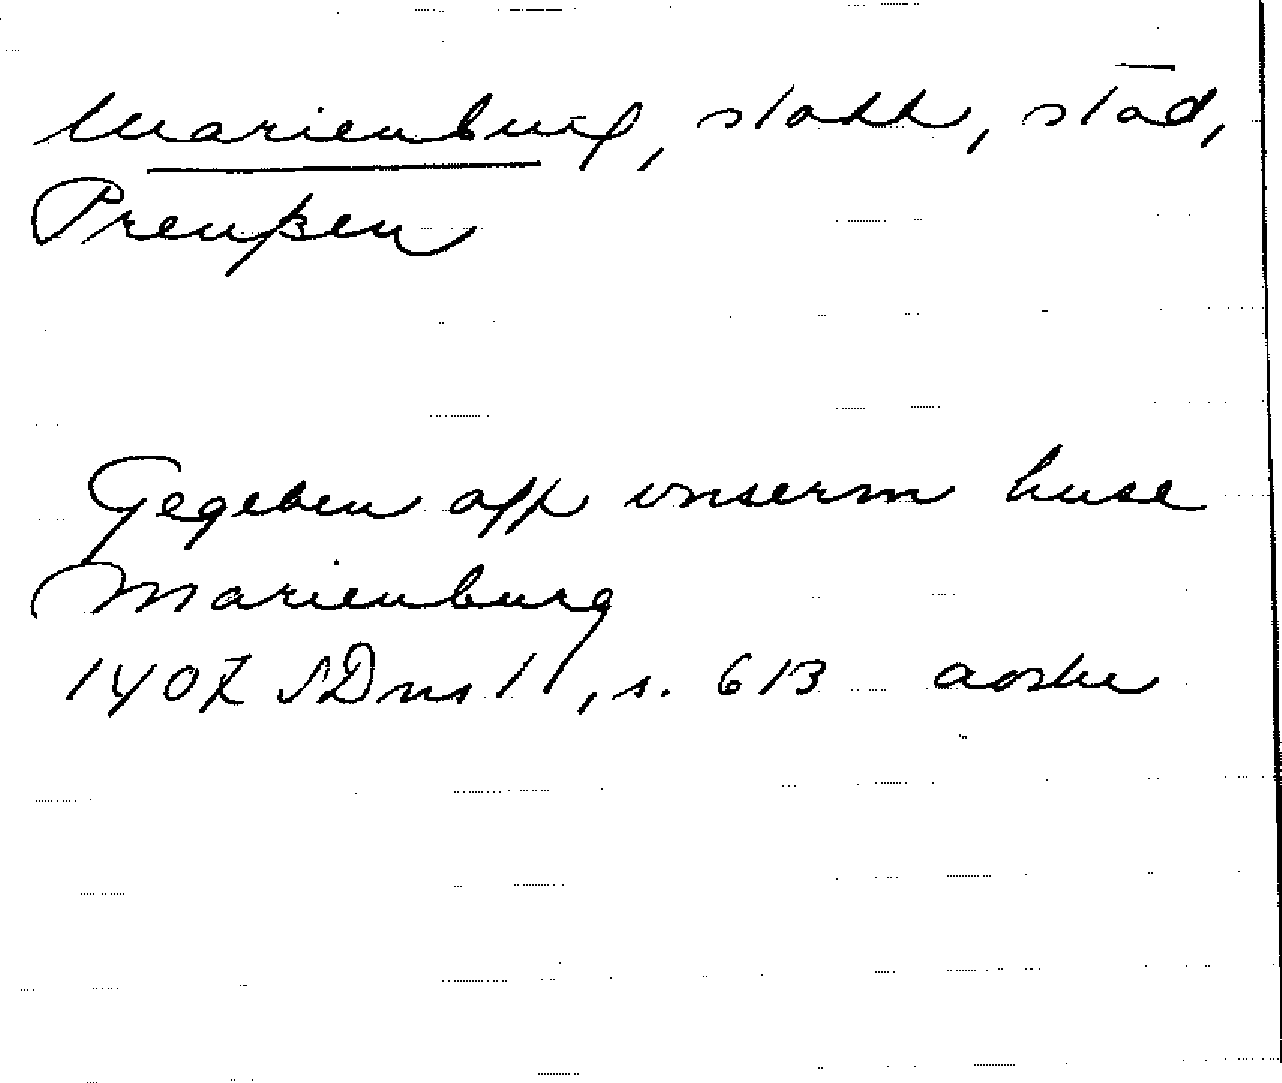 Marienburg, slott, stad,
Preußen
Gegeben off vnserm huse
Marienburg
1407 SDns 1, s. 613 avskr